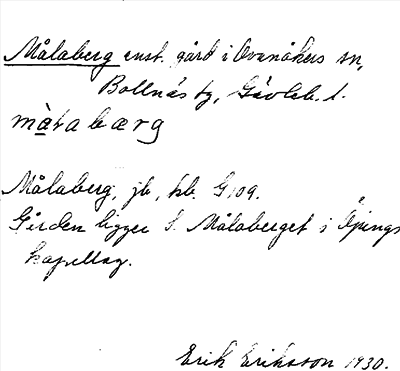 Målaberg enst. gård i Ovanåkers sn,
Bollnäs tg, Gävleb. l.
måra bærg
Målaberg, jb, kb. G 109.
Gården ligger i Målaberget i Öjungs
kapellag.
Erik Eriksson 1930.